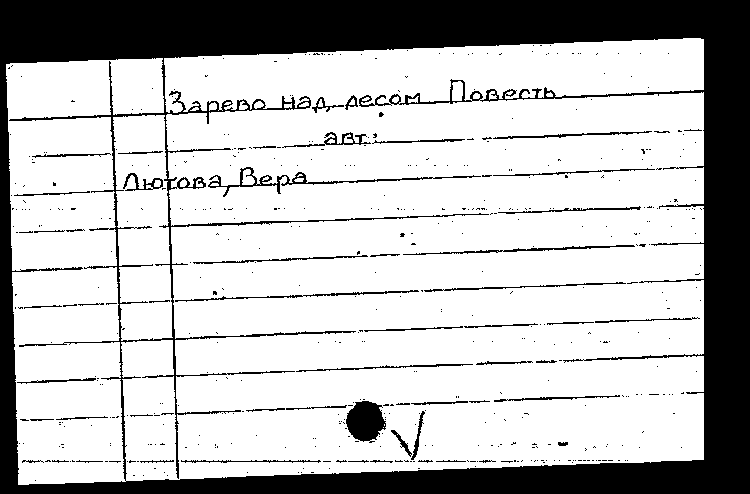 Зарево над лесом Повесть
авт:
Лютова, Вера